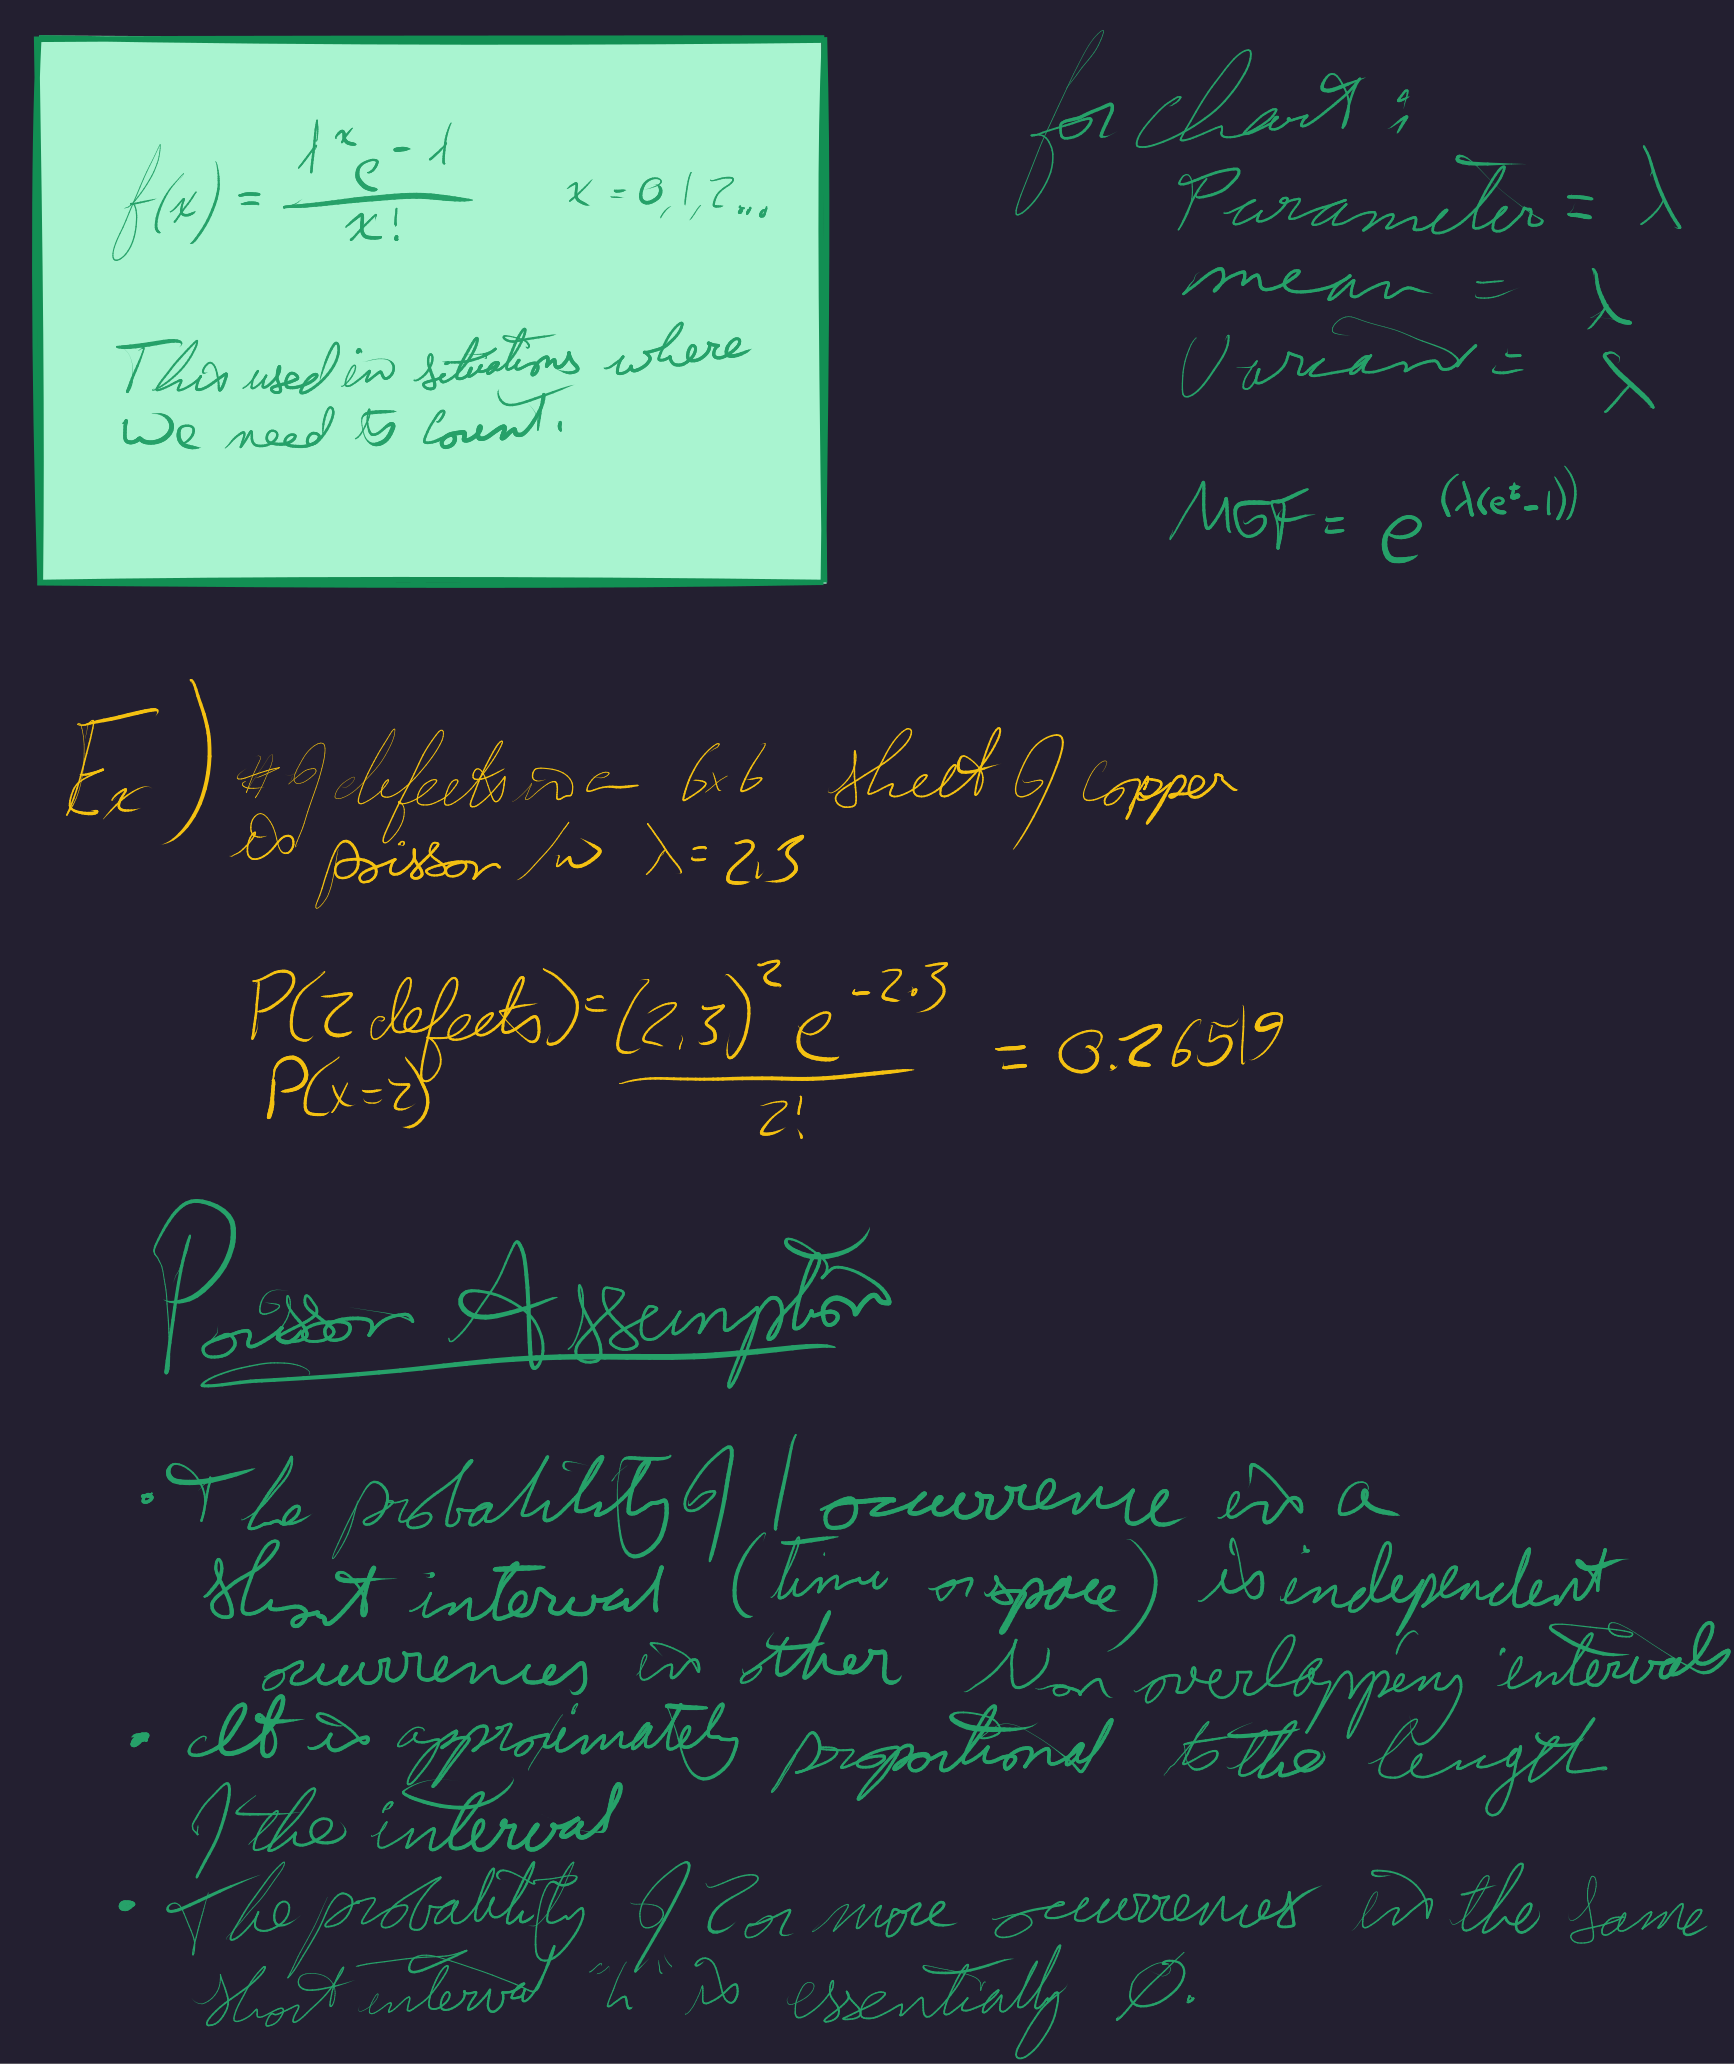 f(x) = 1^x e^-1 / x!   x = 0,1,2...
This used in situations where
we need to count.
for chart :
Parameter = λ
mean = λ
Variant = λ
MGF = e^(λ(e^t-1))
Ex) # of defects in a 6x6 sheet of copper
is poisson /w λ = 2.3
P(2 defects) = (2.3)^2 e^-2.3 / 2! = 0.26519
P(x=2)
Poisson Assumption
• The probability of 1 ocurrence in a
short interval (time or space) is independent
ocurrences in other Non overlapping intervals
• It is approximately proportional to the length
of the interval
• The probability of 2 or more ocurrences in the same
short interval "h" is essentially 0.